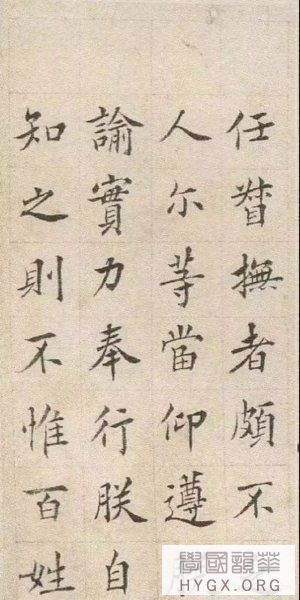 任督撫者頗不
人尓等當仰遵
諭實力奉行朕自
知之則不惟百姓
學國韻華
HYGX.ORG